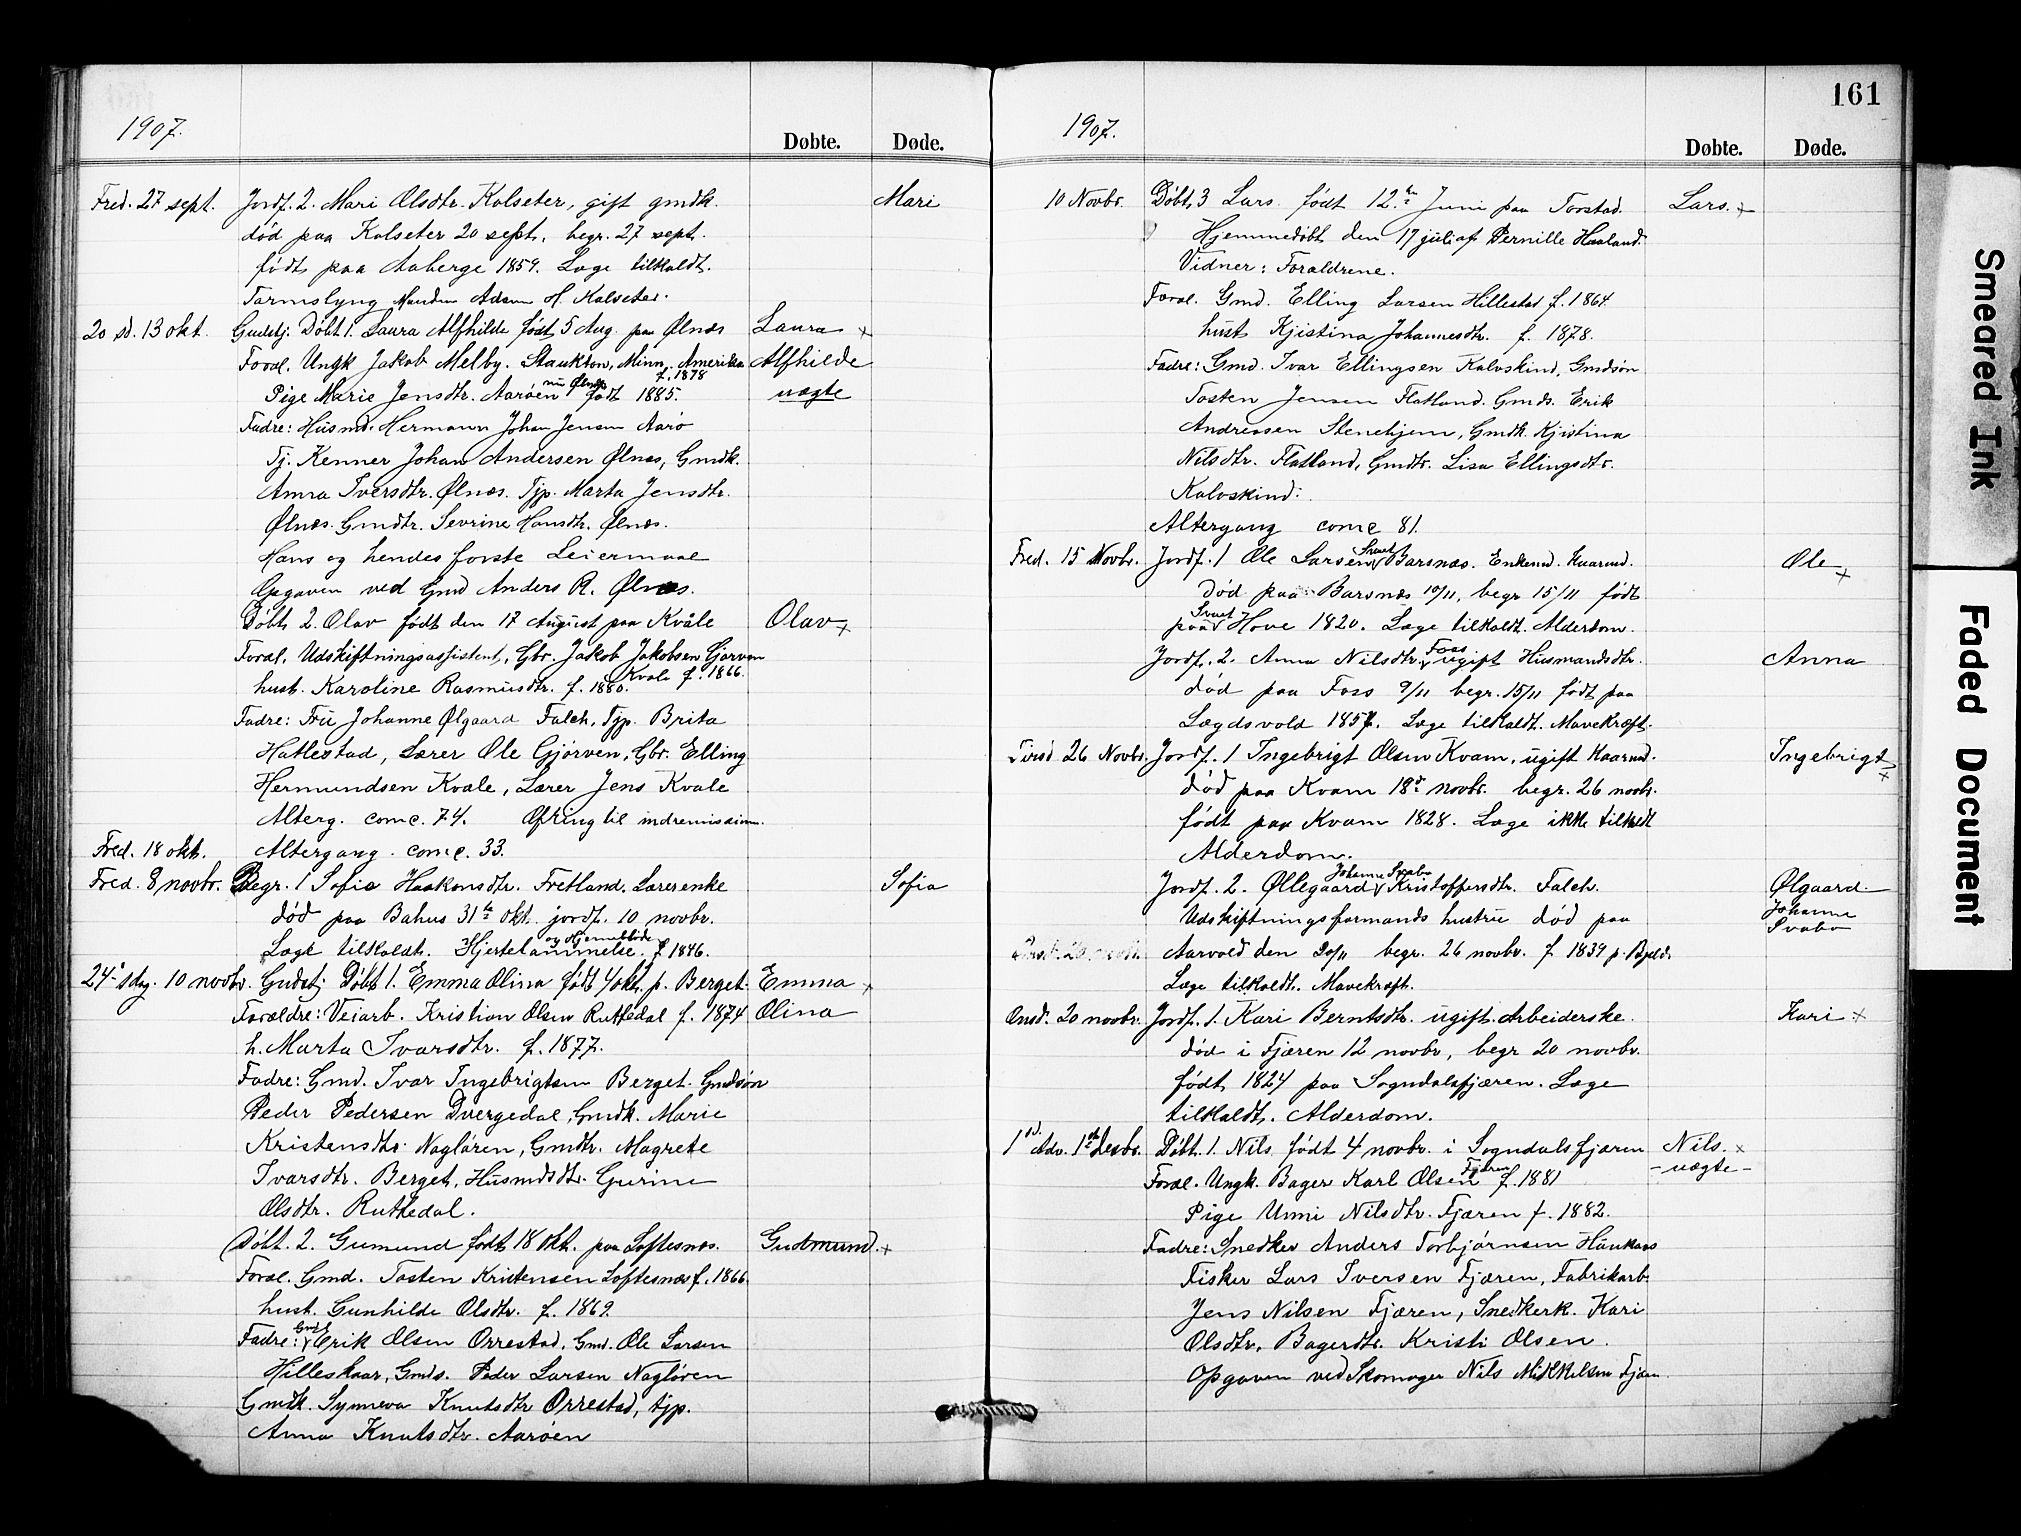 1907.
Døbte. Døde.
Fred. 27 sept. Jordf. 2. Mari Olsdtr. Kalseter, gift gmdk. Mari
død paa Kalseter 20 sept. begr. 27 sept.
født paa Aaberge 1859. Læge tilkaldt.
Tarmslyng Manden Adam H. Kalseter.
20 sd. 13 okt. Gudstj. Døbt 1. Laura Alfhilde født 5 Aug. paa Ølnæs Laura
Foræl. Ungk Jakob Melby. Stankton, Minn. Amerika Alfhilde
f. 1878
nu Ølnæs
Pige Marie Jensdtr. Aarøen født 1885. uægte
Fadre: Husmd. Hermann Johan Jensen Aarø
Tj. Kenner Johan Andersen Ølnæs, Gmdk.
Anna Iversdtr. Ølnæs. Tjp. Marta Jensdtr.
Ølnæs. Gmdtr. Sevrine Hansdtr. Ølnæs.
Hans og hendes første Leiermaal
Opgaven ved Gmd Anders R. Ølnæs.
Døbt 2. Olav født den 17 August paa Kvåle Olav
Foræl. Udskiftningsassistent, Gbr. Jakob Jakobsen Gjørven
Kvale f. 1866.
hust. Karoline Rasmusdtr. f. 1880.
Fadre: Fru Johanne Ølgaard Falch, Tjp. Brita
Hatlestad, Lærer Ole Gjørven, Gbr. Elling
Hermundsen Kvale, Lærer Jens Kvale
Alterg. come. 74. Ofring til indremission.
Fred. 18 okt. Altergang. come. 33.
Fred. 8 novbr. Begr. 1 Sofie Haakonsdtr. Fretland. Lærerenke Sofia
død paa Bahus 31te okt. jordf. 10 novbr.
og Hjerneblødn
Læge tilkaldt. Hjertelammelse. f 1846.
24 sdag. 10 novbr. Gudstj Døbt 1. Emma Olina født 4 okt. p. Berget. Emma
Forældre: Veiarb. Kristian Olsen Ruttedal f. 1874 Olina
h. Marta Ivarsdtr. f. 1877.
Fadre: Gmd. Ivar Ingebrigtsen Berget. Gmdsøn
Peder Pedersen Dvergedal, Gmdk. Marie
Kristensdtr. Nagløren, Gmdtr. Magrete
Ivarsdtr. Berget, Husmdsdtr. Gurine
Olsdtr. Ruttedal.
Døbt. 2. Gumund født 18 Okt. paa Loftesnæs. Gudmund.
Foræl. Gmd. Tosten Kristensen Loftesnæs f. 1866.
hust. Gunhilde Olsdtr. f. 1869.
Gmds
Fadre: Erik Olsen Orrestad, Gmd. Ole Larsen
Hilleskaar, Gmds. Peder Larsen Nagløren
Gmdk. Synneva Knutsdtr Orrestad, tjp.
Anna Knutsdtr. Aarøen
161
1907.
Døbte. Døde.
10 Novbr. Døbt, 3 Lars født 12te Juni paa Torstad. Lars.
Hjemmedøbt den 17 juli af Pernille Haaland.
Vidner: Forældrene.
Foræl. Gmd. Elling Larsen Hillestad f. 1864
hust Kjistina Johannesdtr. f. 1878.
Fadre: Gmd. Ivar Ellingsen Kalvskind, Gmdsøn
Tosten Jensen Flatland. Gmds. Erik
Andreasen Stenehjem, Gmdk. Kjistina
Nilsdtr. Flatland, Gmdtr. Lisa Ellingsdtr.
Kalvskind.
Altergang come 81.
Fred. 15 Novbr. Jordf. 1 Ole Larsen Barsnæs. Enkemd. Kaarmd. Ole
død paa Barsnæs 10/11, begr 15/11 født
paa Hove 1820. Læge tilkaldt. Alderdom.
Foss
Jordf. 2. Anna Nilsdtr. ugift Husmandsdtr. Anna
død paa Foss 9/11 begr. 15/11 født paa
Lægdsvold 1857. Læge tilkaldt. Mavekræft.
Tirsd 26 Novbr. Jordf. 1 Ingebrigt Olsen Kvam, ugift Kaarmd. Ingebrigt
død paa Kvam 18de novbr. begr. 26 novbr.
født paa Kvam 1828. Læge ikke tilkaldt
Alderdom.
Johanne Svabo
Jordf. 2. Øllegaard Kristoffersdtr. Falch. Ølgaard
Udskiftningsformands hustru død paa Johanne Svabo
Aarvold den 20/11 begr. 26 novbr. f 1839 p.
Læge tilkaldt. Mavekræft.
Onsd. 20 novbr. Jordf. 1. Kari Berntsdtr. ugift. Arbeiderske. Kari
død i Fjæren 12 novbr, begr 20 novbr.
født 1824 paa Sogndalsfjæren. Læge
tilkaldt. Alderdom.
1 sd. Adv. 1ste Desbr. Døbt. 1. Nils født 4 novbr. i Sogndalsfjæren Nils.
Fjæren
Foræl. Ungk. Bager Karl Olsen f. 1881 - uægte -
Pige Unni Nilsdtr. Fjæren f. 1882.
Fadre: Snedker Anders Torbjørnsen Haukaas
Fisker Lars Iversen Fjæren, Fabrikarb.
Jens Nilsen Fjæren, Snedkerk. Kari
Olsdtr, Bagerdtr. Kristi Olsen.
Opgaven ved Skomager Nils Mikkelsen Fjæren
Smeared Ink
Faded Document